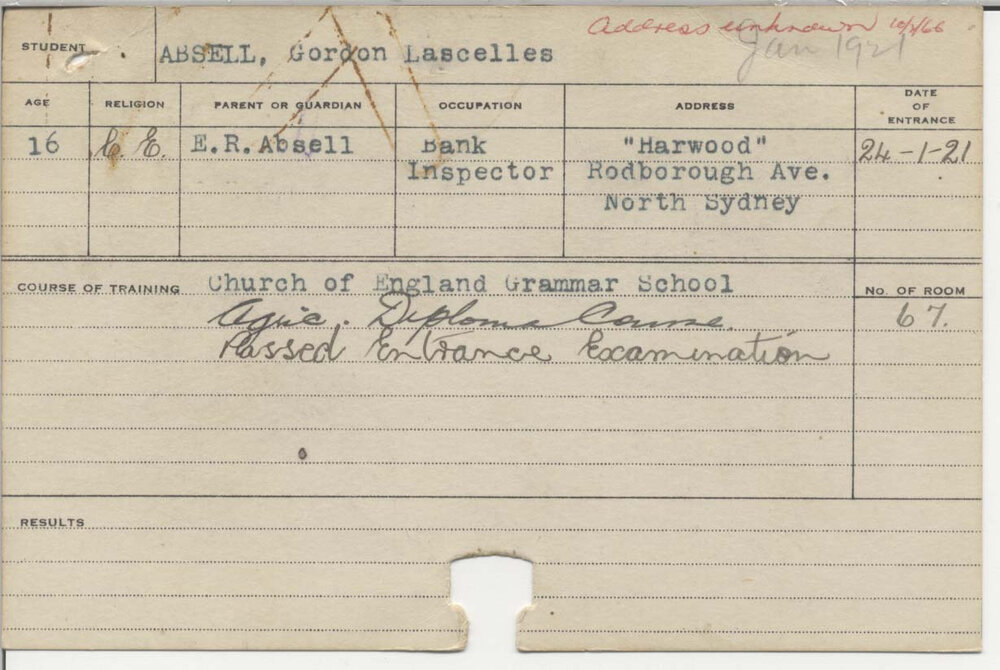 Address unknown 10/8/66
Jan 1921
STUDENT ABSELL, Gordon Lascelles
AGE RELIGION PARENT OR GUARDIAN OCCUPATION ADDRESS DATE OF ENTRANCE
16 C. E. E.R.Absell Bank "Harwood" 24-1-21
Inspector Rodborough Ave.
North Sydney
COURSE OF TRAINING Church of England Grammar School No. OF ROOM
Agric. Diploma Course. 67.
Passed Entrance Examination
RESULTS